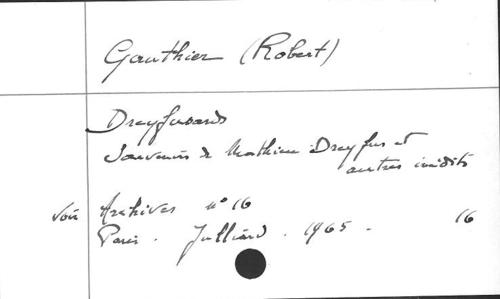 Gauthier (Robert)
Dreyfusards
Souvenirs de Mathieu Dreyfus et
autres inédits
voir Archives n° 16
Paris. Julliard. 1965. 16